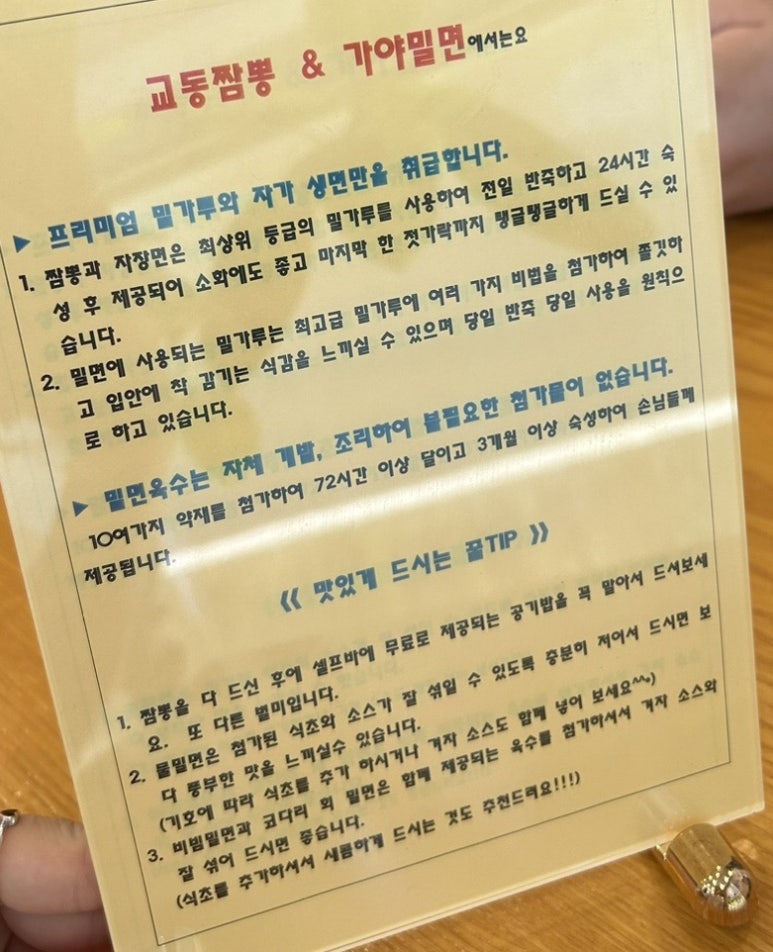 교동짬뽕 & 가야밀면에서는요
▶ 프리미엄 밀가루와 자가 생면만을 취급합니다.
1. 짬뽕과 자장면은 최상위 등급의 밀가루를 사용하여 전일 반죽하고 24시간 숙
성 후 제공되어 소화에도 좋고 마지막 한 젓가락까지 탱글탱글하게 드실 수 있
습니다.
2. 밀면에 사용되는 밀가루는 최고급 밀가루에 여러 가지 비법을 첨가하여 쫄깃하
고 입안에 착 감기는 식감을 느끼실 수 있으며 당일 반죽 당일 사용을 원칙으
로 하고 있습니다.
▶ 밀면육수는 자체 개발, 조리하여 불필요한 첨가물이 없습니다.
10여가지 약재를 첨가하여 72시간 이상 달이고 3개월 이상 숙성하여 손님들께
제공됩니다.
《 맛있게 드시는 꿀TIP 》
1. 짬뽕을 다 드신 후에 셀프바에 무료로 제공되는 공기밥을 꼭 말아서 드셔보세
요. 또 다른 별미입니다.
2. 물밀면은 첨가된 식초와 소스가 잘 섞일 수 있도록 충분히 저어서 드시면 보
다 풍부한 맛을 느끼실수 있습니다.
(기호에 따라 식초를 추가 하시거나 겨자 소스도 함께 넣어 보세요^^)
3. 비빔밀면과 코다리 회 밀면은 함께 제공되는 육수를 첨가하셔서 겨자 소스와
잘 섞어 드시면 좋습니다.
(식초를 추가하셔서 새콤하게 드시는 것도 추천드려요!!!)